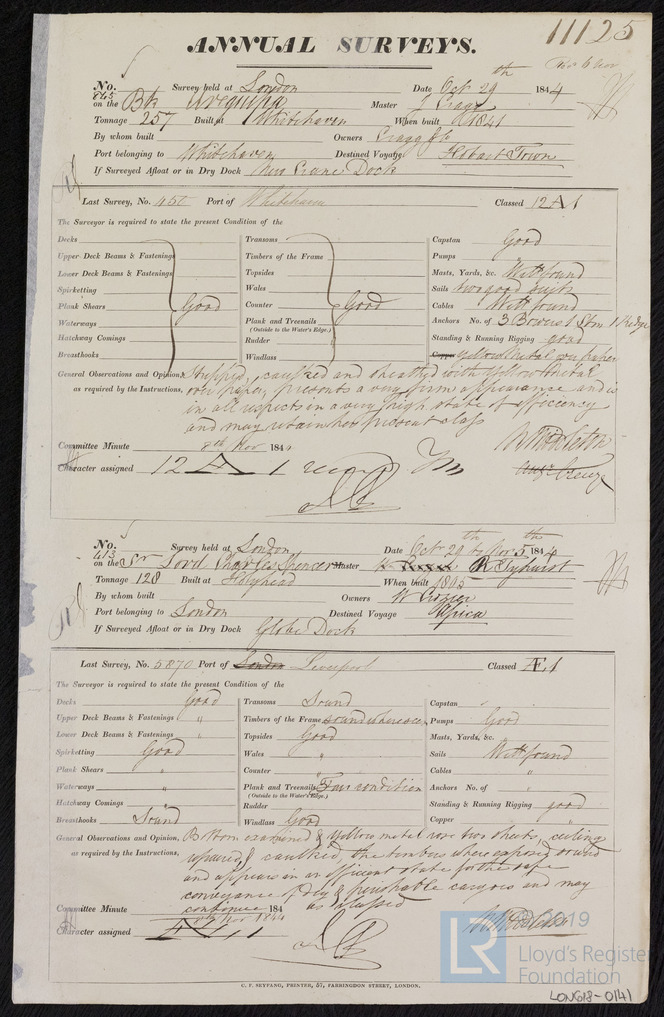 ANNUAL SURVEYS.
11125
No. 645 Survey held at London Date Oct 29th 1844
on the Bk Arequipa Master J Cragg
Tonnage 257 Built at Whitehaven When built 1841
By whom built Owners Cragg & Co
Port belonging to Whitehaven Destined Voyage Hobart Town
If Surveyed Afloat or in Dry Dock New Crane Dock
Last Survey, No. 450 Port of Whitehaven Classed 12 A 1
The Surveyor is required to state the present Condition of the
Decks Transoms Capstan Good
Upper Deck Beams & Fastenings Timbers of the Frame Pumps
Lower Deck Beams & Fastenings Topsides Masts, Yards, &c. Well found
Spirketting Wales Sails two good suits
Plank Shears Good Counter Good Cables Well found
Waterways Plank and Treenails Anchors No. of 3 Bowers 1 Strm 1 Kedge
(Outside to the Water's Edge.)
Hatchway Comings Rudder Standing & Running Rigging good
Breasthooks Windlass Copper yellow metal over paper
General Observations and Opinion, Stripped, caulked and sheathed with yellow metal
as required by the Instructions, over paper, presents a very firm appearance and is
in all respects in a very high state of efficiency
and may retain her present class
W Middleton
Committee Minute 8th Nov 1844
Character assigned 12 A 1
No. 413 Survey held at London Date Oct 29 to Nov 5th 1844
on the Sr Lord Charles Spencer Master R Tyhurst
Tonnage 128 Built at Holyhead When built 1805
By whom built Owners W Crozier
Port belonging to London Destined Voyage Africa
If Surveyed Afloat or in Dry Dock Globe Dock
Last Survey, No. 5870 Port of London Liverpool Classed Æ 1
The Surveyor is required to state the present Condition of the
Decks Good Transoms Sound Capstan "
Upper Deck Beams & Fastenings " Timbers of the Frame sound where seen Pumps Good
Lower Deck Beams & Fastenings " Topsides Good Masts, Yards, &c.
Spirketting Good Wales " Sails Well found
Plank Shears " Counter " Cables "
Waterways " Plank and Treenails Fair condition Anchors No. of "
(Outside to the Water's Edge.)
Hatchway Comings " Rudder Standing & Running Rigging good
Breasthooks Sound Windlass Good Copper "
General Observations and Opinion, Bottom examined & yellow metal over two sheets, ceiling
as required by the Instructions, repaired & caulked, the timbers where exposed sound
and appears in an efficient state for the safe
conveyance of Dry & perishable cargoes and may
continue as classed
Committee Minute 8th Nov 1844
Character assigned Æ 1
W Middleton
© 2019
LR
Lloyd's Register
Foundation
C. F. SEYFANG, PRINTER, 57, FARRINGDON STREET, LONDON.
LON618-0141